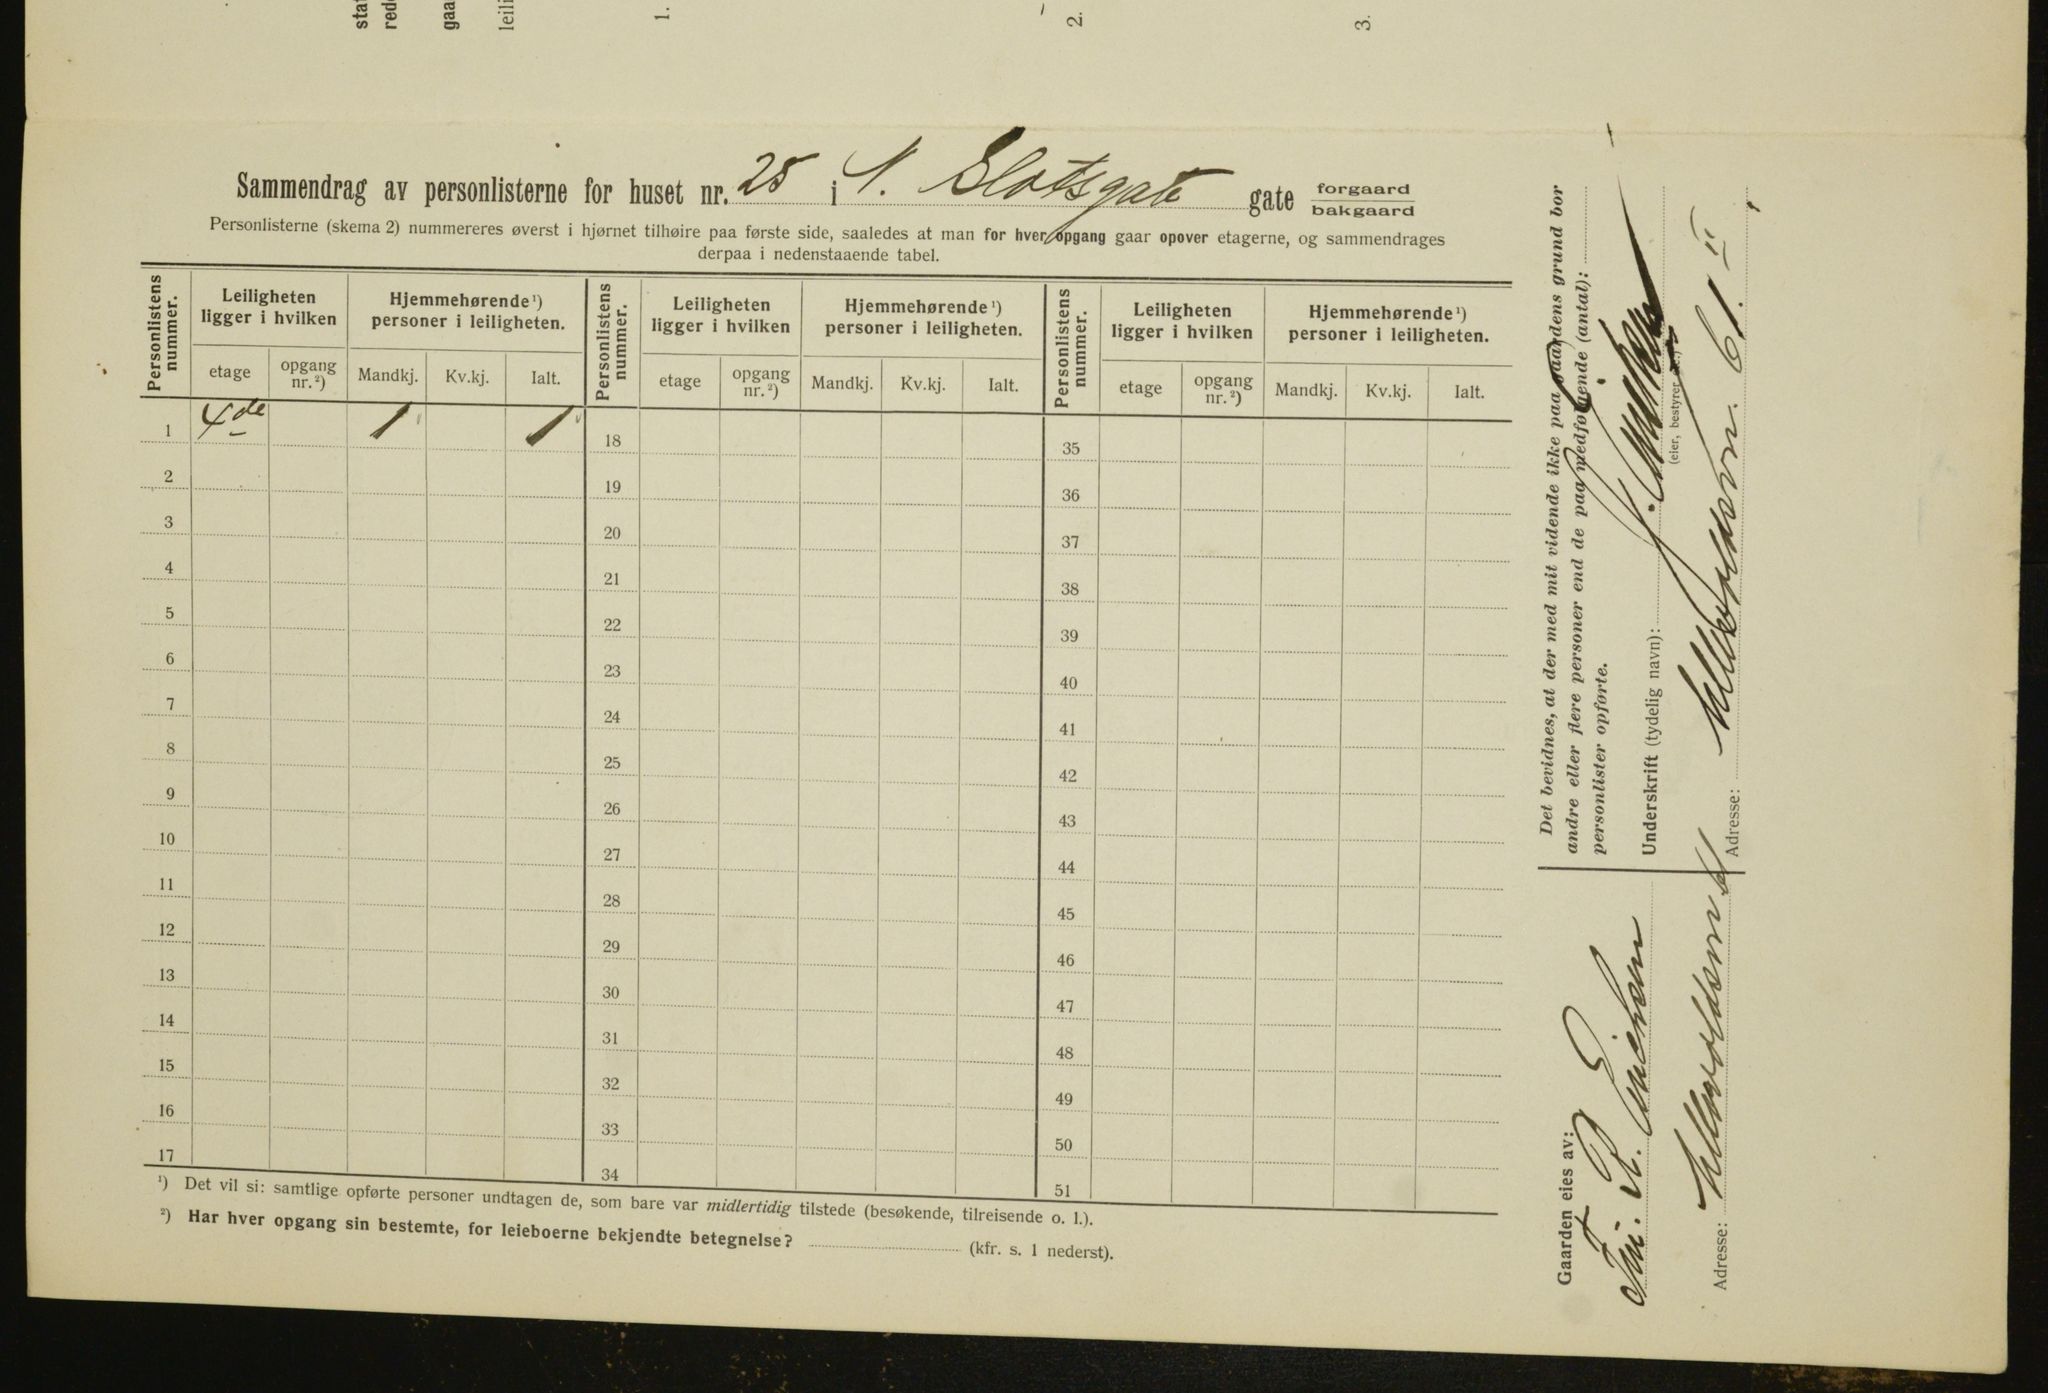 1.
2.
3.
Sammendrag av personlisterne for huset nr. 25 i N. Slotsgate gate forgaard
bakgaard
Personlisterne (skema 2) nummereres øverst i hjørnet tilhøire paa første side, saaledes at man for hver opgang gaar opover etagerne, og sammendrages
derpaa i nedenstaaende tabel.
Personlistens nummer. Leiligheten ligger i hvilken Hjemmehørende ¹) personer i leiligheten. Personlistens nummer. Leiligheten ligger i hvilken Hjemmehørende ¹) personer i leiligheten. Personlistens nummer. Leiligheten ligger i hvilken Hjemmehørende ¹) personer i leiligheten.
etage opgang nr. ²) Mandkj. Kv.kj. Ialt. etage opgang nr. ²) Mandkj. Kv.kj. Ialt. etage opgang nr. ²) Mandkj. Kv.kj. Ialt.
1 4de 1 1 18 35
2 19 36
3 20 37
4 21 38
5 22 39
6 23 40
7 24 41
8 25 42
9 26 43
10 27 44
11 28 45
12 29 46
13 30 47
14 31 48
15 32 49
16 33 50
17 34 51
¹) Det vil si: samtlige opførte personer undtagen de, som bare var midlertidig tilstede (besøkende, tilreisende o. l.).
²) Har hver opgang sin bestemte, for leieboerne bekjendte betegnelse? (kfr. s. 1 nederst).
Det bevidnes, at der med mit vidende ikke paa gaardens grund bor
andre eller flere personer end de paa medfølgende (antal):
personlister opførte.
Underskrift (tydelig navn):
(eier, bestyrer etc.)
Adresse: 61. II
Gaarden eies av:
R.
Adresse: